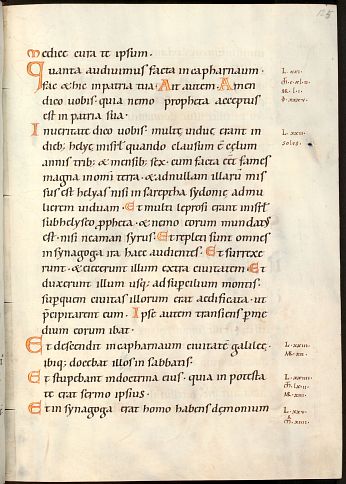 Medice cura te ipsum·
Quanta audiuimus facta in capharnaum·
fac & hic in patria tua· Ait autem· Amen
dico uobis· quia nemo propheta acceptus
est in patria sua·
In ueritate dico uobis· multę uiduę erant in
dieb; helyę in isrl quando clausum ē cęlum
annis trib; & mensib; sex· cum facta eēt fames
magna in omi terra· & ad nullam illarū mis
sus est helyas nisi in sarepta sydonię ad mu
lierem uiduam· Et multi leprosi erant in isrl
sub helyseo ppheta· & nemo eorum mundatus
est· nisi neaman syrus· Et repleti sunt omnes
in synagoga ira hęc audientes· Et surrexe
runt· & eiecerunt illum extra ciuitatem· Et
duxerunt illum usq; ad supercilium montis·
sup quem ciuitas illorum erat aedificata· ut
pcipitarent eum· Ipse autem transiens p me
dium eorum ibat·
Et descendit in capharnaum ciuitatē galileę·
ibiq; docebat illos in sabbatis·
Et stupebant in doctrina eius· quia in potesta
te erat sermo ipsius·
Et in synagoga erat homo habens demonium